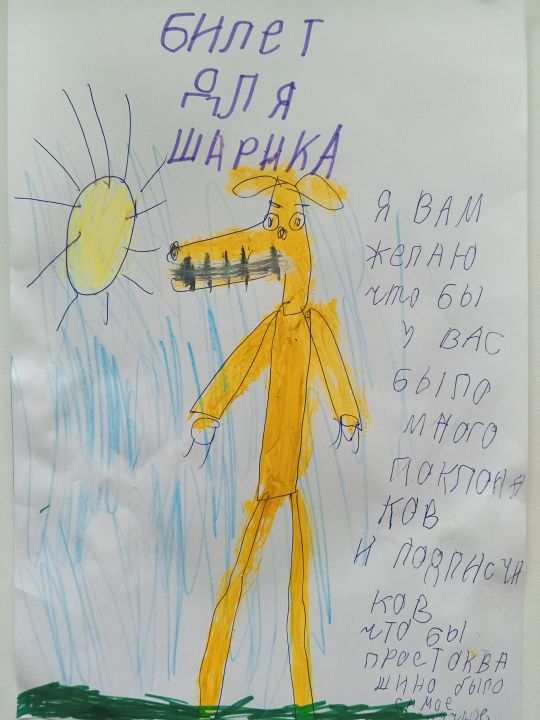 БИЛЕТ
ДЛЯ
ШАРИКА
Я ВАМ
ЖЕЛАЮ
ЧТО БЫ
У ВАС
БЫЛО
МНОГО
ПОКЛОНН
КОВ
И ПОДПИСЧИ
КОВ
ЧТО БЫ
ПРОСТОКВА
ШИНО БЫЛО
САМОЕ